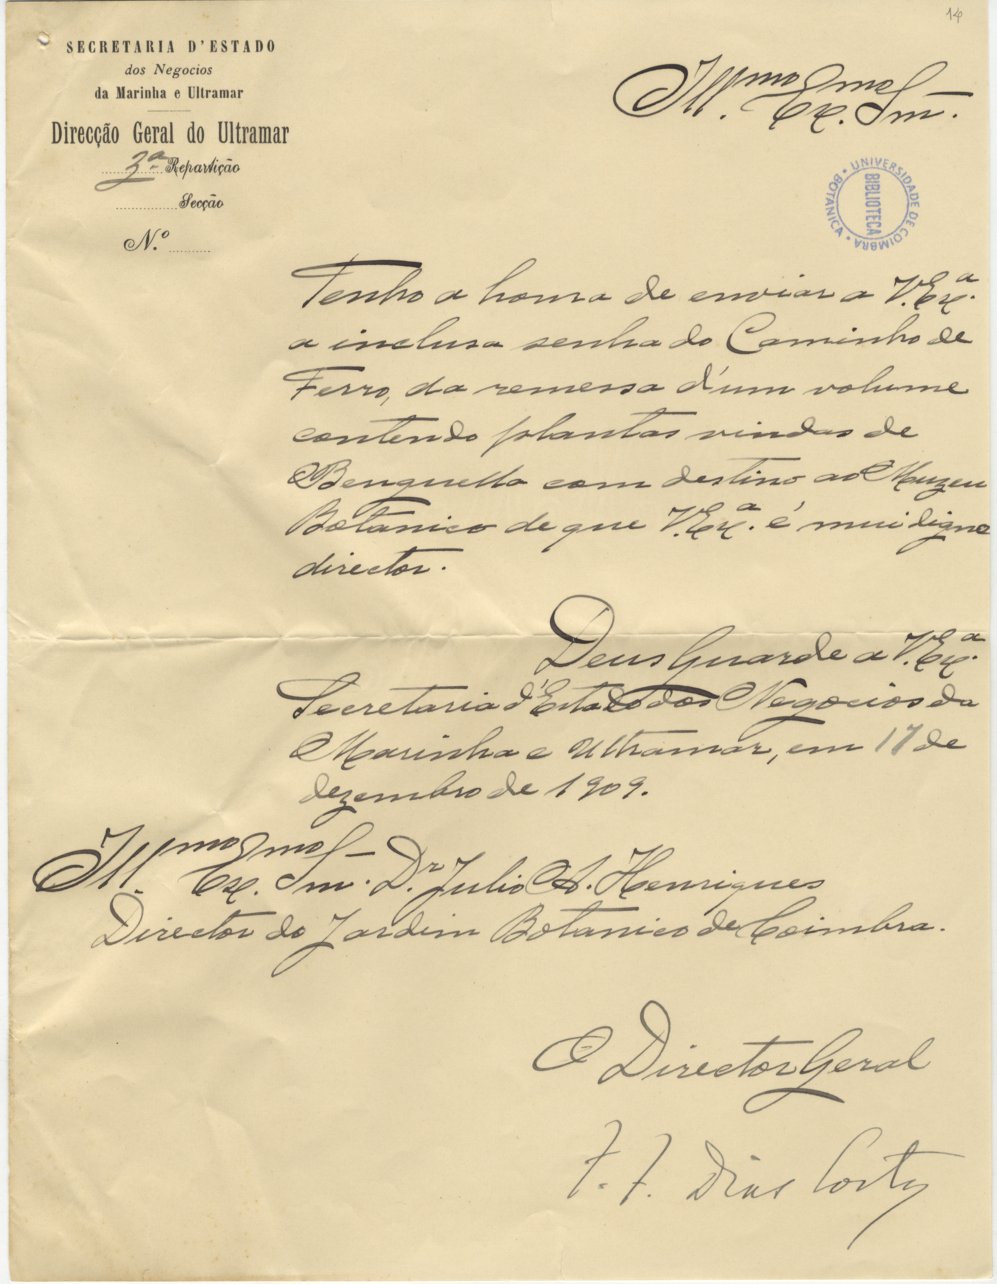 14
SECRETARIA D'ESTADO
dos Negocios
da Marinha e Ultramar
Direcção Geral do Ultramar
3ª Repartição
Secção
N.º
Ill.mo Ex.mo Snr.
UNIVERSIDADE DE COIMBRA • BOTANICA •
BIBLIOTECA
Tenho a honra de enviar a V. Exª.
a inclusa senha do Caminho de
Ferro, da remessa d'um volume
contendo plantas vindas de
Benguella com destino ao Muzeu
Botanico de que V. Exª. é mui digno
director.
Deus Guarde a V. Exª.
Secretaria d'Estado dos Negocios da
Marinha e Ultramar, em 17 de
dezembro de 1909.
Ill.mo Ex.mo Snr. Dr. Julio A. Henriques
Director do Jardim Botanico de Coimbra.
O Director Geral
F. F. Dias Costa